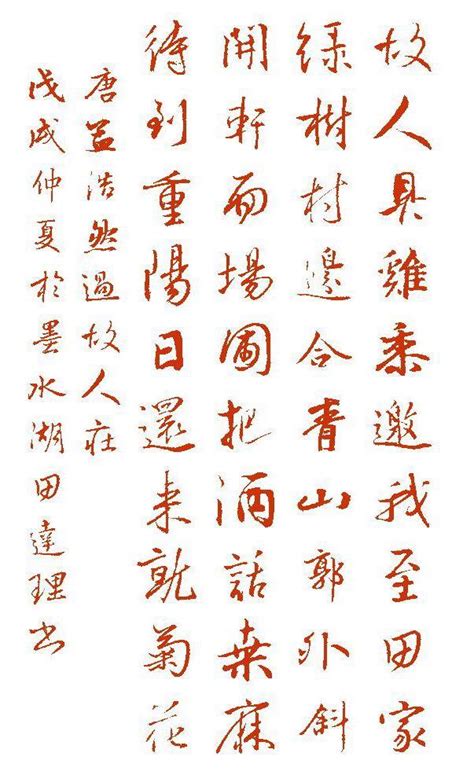 故人具雞黍邀我至田家
綠樹村邊合青山郭外斜
開軒面場圃把酒話桑麻
待到重陽日還来就菊花
唐孟浩然過故人莊
戊戌仲夏於墨水湖田達理书